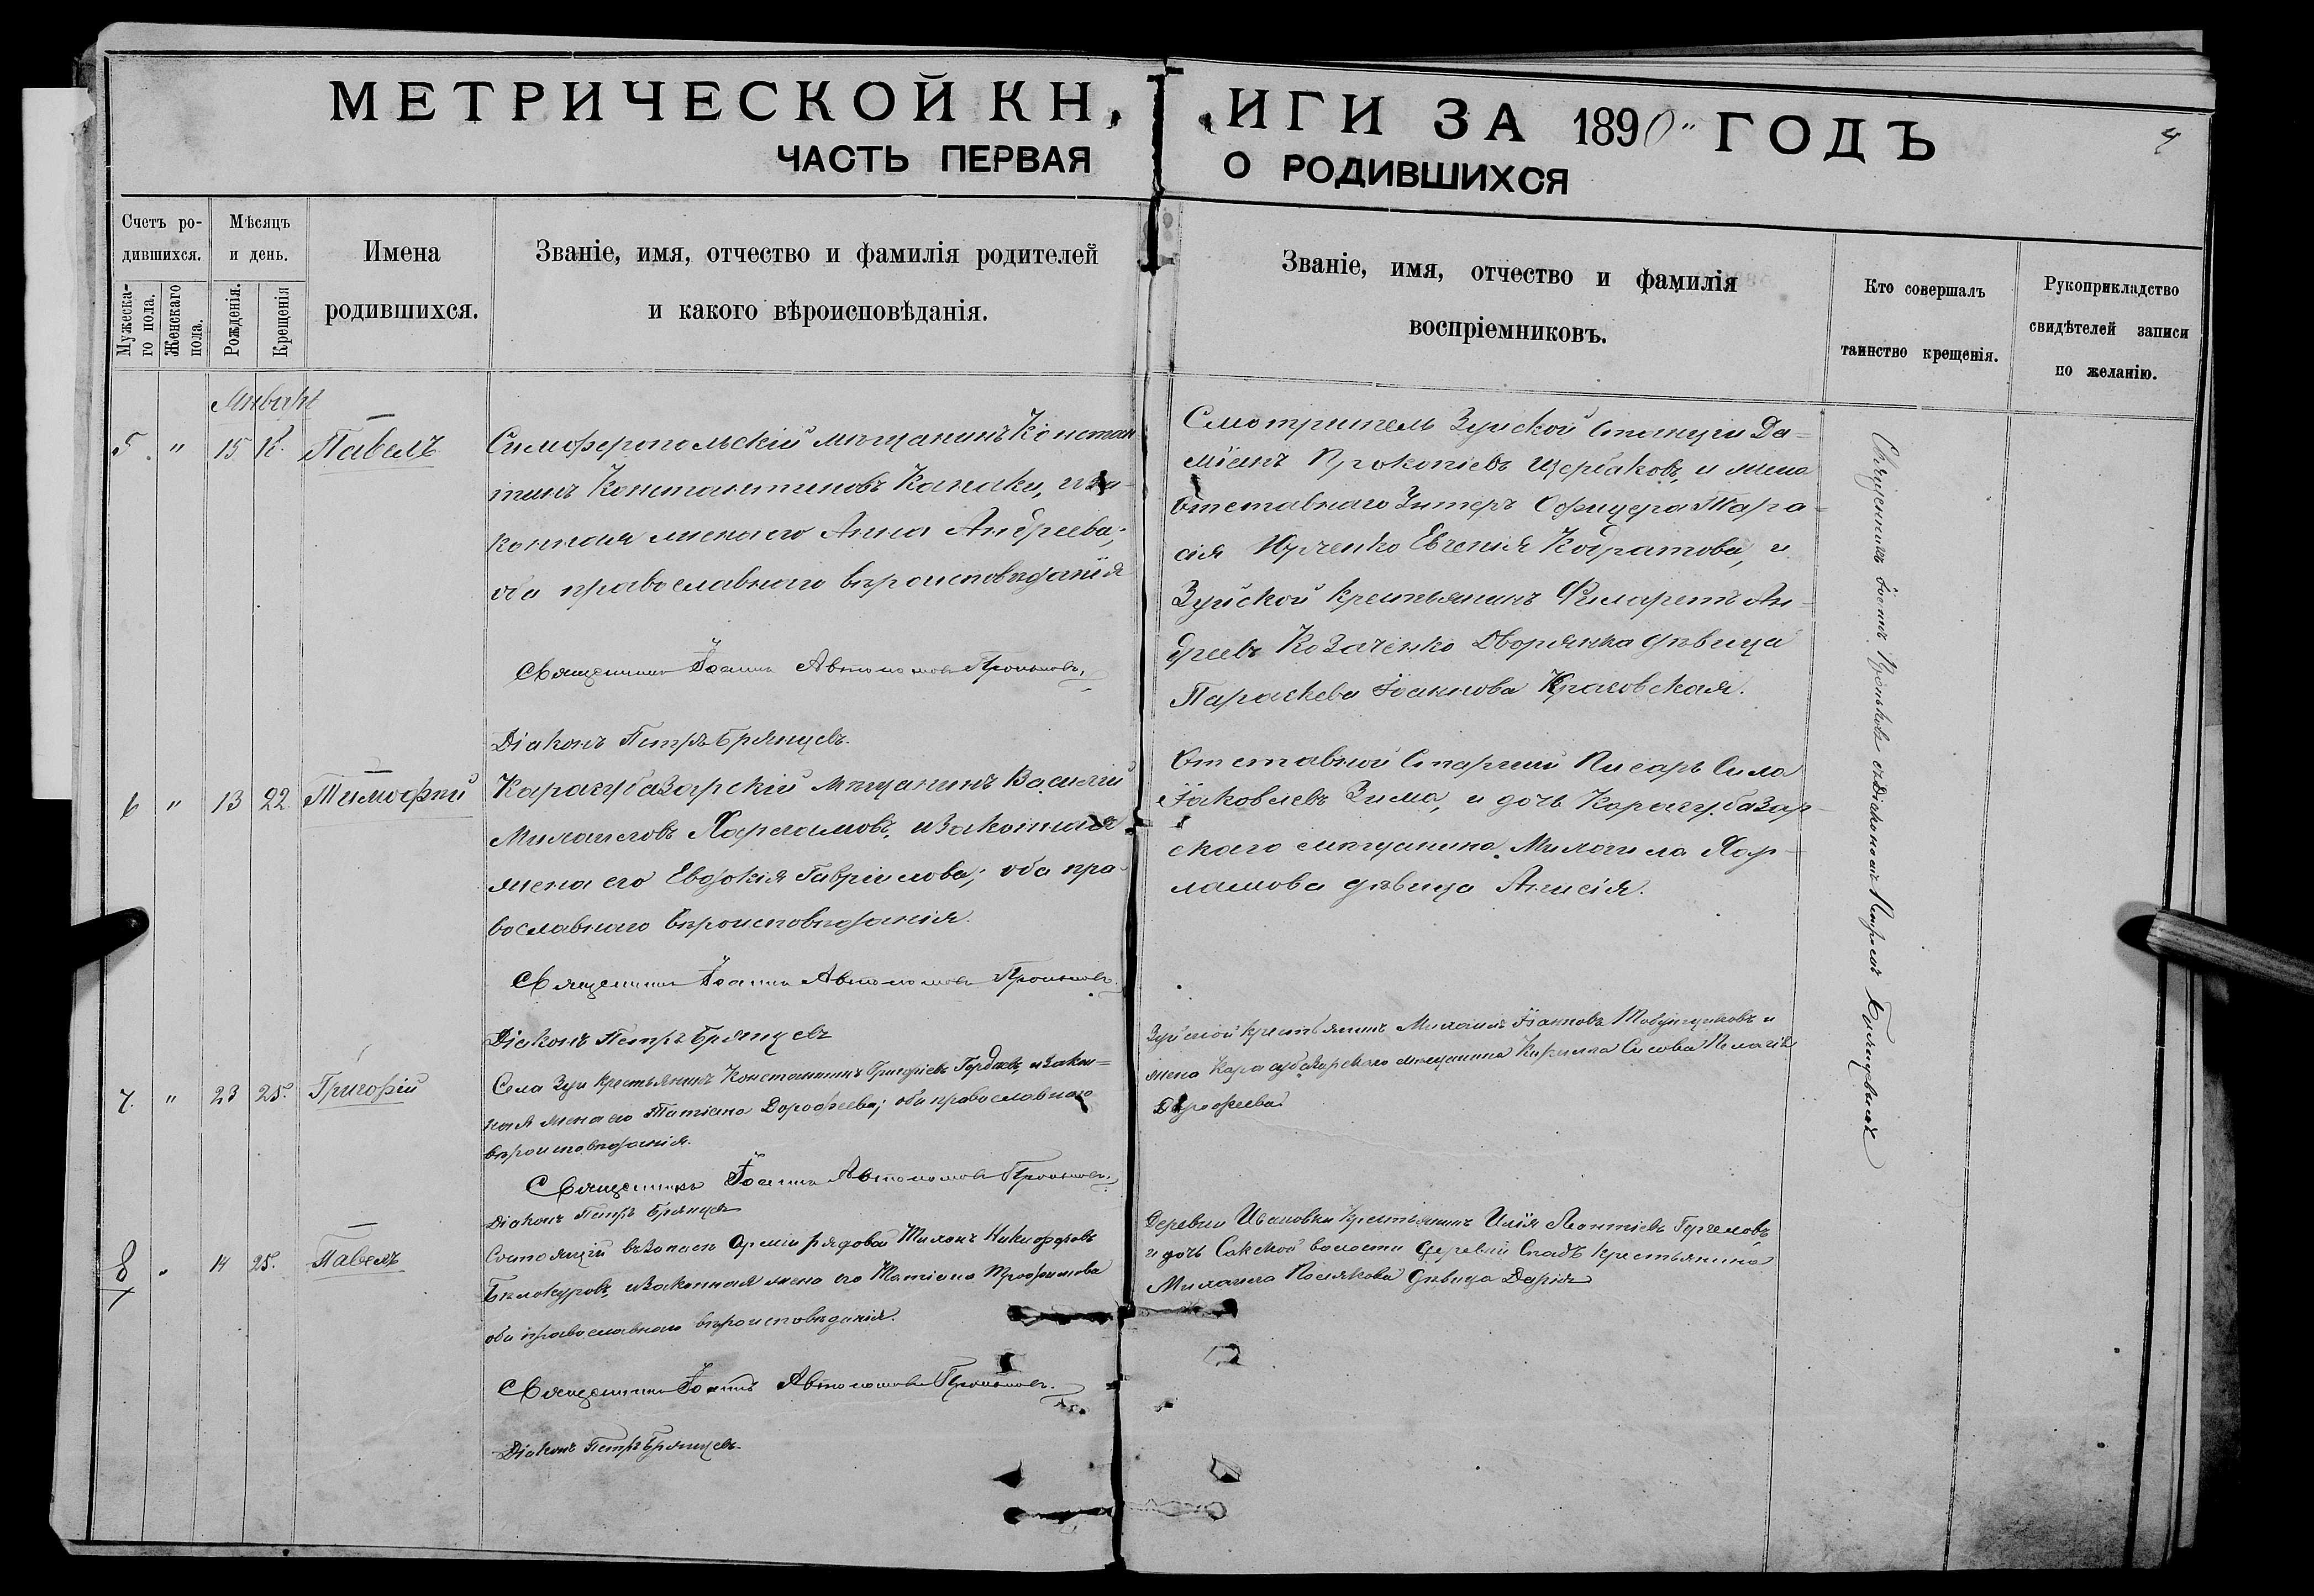 МЕТРИЧЕСКОЙ КН
ИГИ ЗА 1890 ГОДЪ
4
ЧАСТЬ ПЕРВАЯ
О РОДИВШИХСЯ
Счетъ ро-
дившихся.
Мужеска-
го пола.
Женскаго
пола.
Мѣсяцъ
и день.
Рожденія.
Крещенія
Имена
родившихся.
Званіе, имя, отчество и фамилія родителей
и какого вѣроисповѣданія.
Званіе, имя, отчество и фамилія
воспріемниковъ.
Кто совершалъ
таинство крещенія.
Рукоприкладство
свидѣтелей записи
по желанію.
5 " 15 Павелъ
Симферопольскій мѣщанинъ Констан
тинъ Константиновъ Канаки, и за-
конная жена его Анна Андреева;
оба православнаго вѣроисповѣданія
Священникъ Іоаннъ Автономовъ
Діаконъ Петръ Брянцевъ.
Смотритель Зуйской Станціи Да=
міанъ Прокопіевъ Щербаковъ, и жена
отставнаго Унтеръ Офицера Тара=
сія Евгенія Кодратова, и
Зуйской крестьянинъ Филаретъ Ан-
дреевъ Козаченко Дворянка дѣвица
Параскева Іоаннова
6 " 13 22 Тимофей
Карасубазарскій мѣщанинъ Василій
Михаиловъ Харламовъ, и законная
жена его Евдокія Гавріилова; оба пра-
вославнаго вѣроисповѣданія.
Священникъ Іоаннъ Автономовъ
Діаконъ Петръ Брянцевъ
Отставной Старшій Писарь Сила
Іаковлевъ Зима, и дочь Карасубазар-
скаго мѣщанина Михаила Хар-
ламова дѣвица Анисія.
7. " 23 25. Григорій
Села Зуи крестьянинъ Константинъ Григоріевъ и закон=
ная жена его Татіана Дорофеева; оба православнаго
вѣроисповѣданія.
Священникъ Іоаннъ Автономовъ
Діаконъ Петръ Брянцевъ
Зуйской крестьянинъ Михаилъ Іоанновъ и
жена Карасубазарскаго мѣщанина Кирилла Сисова Пелагія
Дорофеева
8 " 14 25. Павелъ
Состоящій въ запасѣ Арміи рядовой Никифоровъ
Бѣлокуровъ, и законная жена его Татіана Трофимова
оба православнаго вѣроисповѣданія.
Священникъ Іоаннъ Автономовъ
Діаконъ Петръ Брянцевъ.
Деревни Ивановки крестьянинъ Илія Леонтіевъ
и дочь Сакской волости деревни крестьянина
Михаила Полякова дѣвица Дарія
Священникъ Іоаннъ съ Діакономъ Петромъ Брянцевымъ